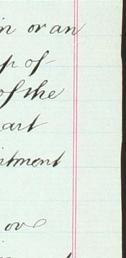 in or an
p of
of the
art
intment
ove